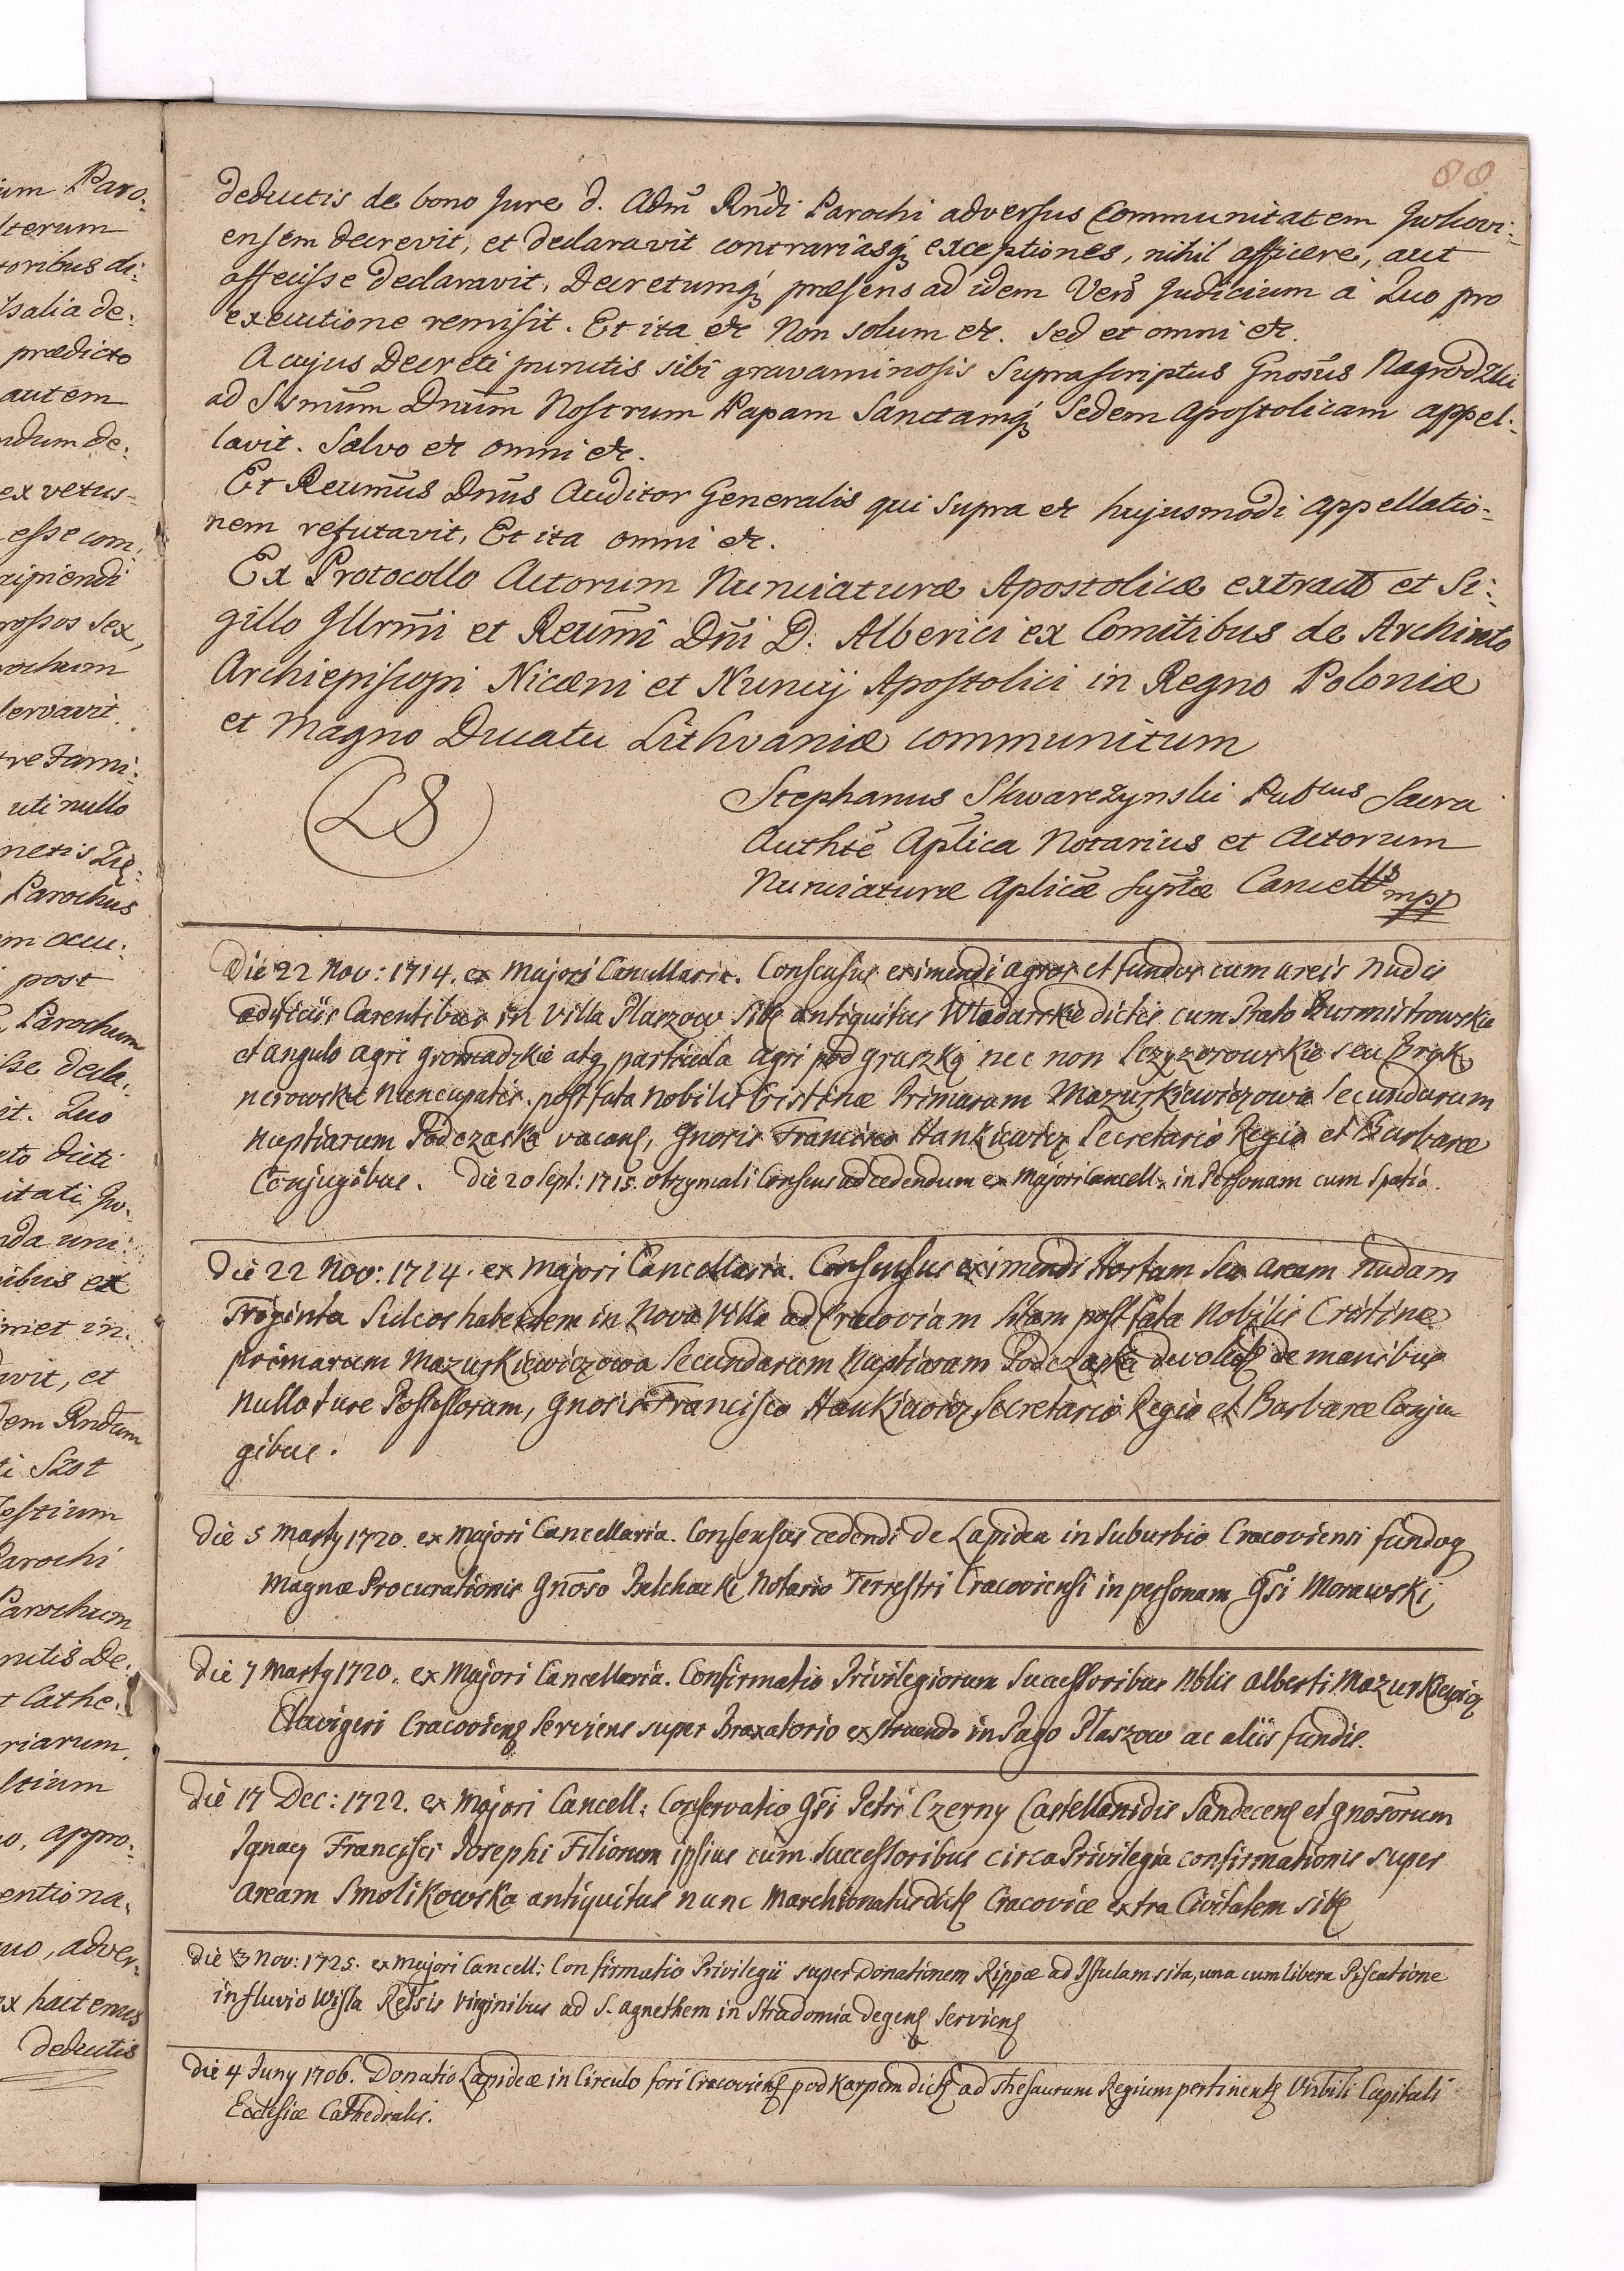 um Paro:
lterum
toribus di:
salia de:
prædicto
autem
ndum de:
ex vetus-
esse com:
cipiendi
rossos sex,
rochum
servavit.
tre Fami:
uti nullo
Parochus
m occu:
post
Parochum
sse decla:
it. Quo
eto dicti
itati Jw:
nda uni:
nibus ex
met in:
avit, et
dem Rndum
ti Szot
Testium
Parochi
Parochum
nctis De:
t Cathe:
riarum.
stium
o, appro:
entiona:
uo, adver:
x hactenus
deductis
88.
deductis de bono Jure d. Adm̃ Rñdi Parochi adversus Communitatem Jwkovi:
ensem decrevit, et declaravit contrariasq₃ exceptiones, nihil afficere, aut
affecisse declaravit, Decretumq₃ præsens ad idem Verò Judicium à Quo pro
executione remisit. Et ita &c Non solum &c. sed et omni &c.
A cujus Decreti punctis sibi gravaminosis Suprascriptus Gnosus Nagrodzki
ad SSmum Dnum Nostrum Papam Sanctamq₃ Sedem Apostolicam appel:
lavit. Salvo &c omni &c.
Et Reumus Dnus Auditor Generalis qui supra &c hujusmodi appellatio:
nem refutavit, Et ita omni &c.
Ex Protocollo Actorum Nunciaturæ Apostolicæ extractū et Si:
gillo Jllrmi et Reumi Dñi D. Alberici ex Comitibus de Archinto
Archiepiscopi Nicæni et Nuncij Apostolici in Regno Poloniæ
et Magno Ducatu Lithvaniæ communitum
LS
Stephanus Skwarczynski Pub<sup>cus</sup> Sacra
Authtē Aplica Notarius et Actorum
Nunciaturæ Aplicæ Suptæ Cancell<sup>s</sup> mpp
Die 22 Nov: 1714. ex Majori Cancellaria. Consensus eximendi agros et fundos cum areis nudis
ædificiis Carentibus in Villa Plaszow sitis antiquitus Wlodarskie dictis cum Prato Burmistrowskie
et angulo agri gromadzkie atq₃ particula agri pod gruszką nec non Sczyzorowskie seu Bryk
nerowskie nuncupatis. post fata Nobilis Cristinæ Primarum Mazurkiewiczowa Secundarum
Nuptiarum Podczaska vacans, Gnosis Francisco Hankiewicz Secretario Regio et Barbaræ
Conjugibus. Die 20 Sept: 1715. otrzymali Consens ad cedendum ex Majori Cancell: in Personam cum Spatio.
Die 22 Nov: 1714. ex Majori Cancellaria. Consensus eximendi Hortum Seu aream nudam
Triginta Sulcos habentem in Nova Villa ad Cracoviam Sitam post fata Nobilis Cristinæ
primarum Mazurkiewiczowa Secundarum Nuptiarum Podczaska devolut de manibus
nullo Jure Possessorum, Gnosis Francisco Hankiewicz Secretario Regio et Barbaræ Conju
gibus.
Die 5 Marty 1720. ex Majori Cancellaria. Consensus cedendi de Lapidea in Suburbio Cracoviensi fundoq₃
Magnæ Procurationis Gnoso Belchacki Notario Terrestri Cracoviensi in personam Gsi Morawski
Die 7 Marty 1720. ex Majori Cancellaria. Confirmatio Privilegiorum Successoribus Nblis Alberti Mazurkiewicz
Clavigeri Cracoviens Serviens super Braxatorio exstruendo in Pago Plaszow ac aliis fundis.
Die 17 Dec: 1722. ex Majori Cancell: Conservatio Gsi Petri Czerny Castellanidis Sandecens et Gnosorum
Ignacy Francisci Josephi Filiorum ipsius cum Successoribus circa Privilegia confirmationis super
aream Smolikowska antiquitus nunc Marchionatus dict Cracoviæ extra Civitatem sitt
Die 3 Nov: 1725. ex Majori Cancell: Confirmatio Privilegii super Donationem Rippæ ad Istulam sita, una cum libera Piscatione
in fluvio Wisla Relsis Virginibus ad S. Agnethem in Stradomia degens serviens
Die 4 Juny 1706. Donatio Lapideæ in Circulo fori Cracoviens pod Karpem dict ad Thesaurum Regium pertinent Vrbili Capituli
Ecclesiæ Cathedralis.